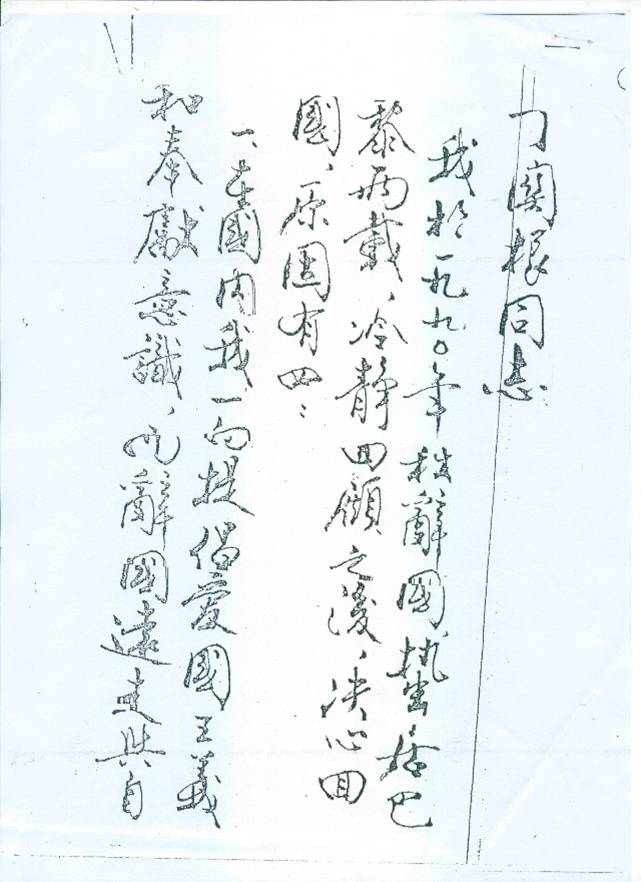 丁關根同志
我於一九九〇年秋辭國蟄居巴
黎兩載、冷靜回顧之後、決心回
國、原因有四：
一、在國内我一向提倡愛國主義
和奉獻意識、而辭國遠走與自